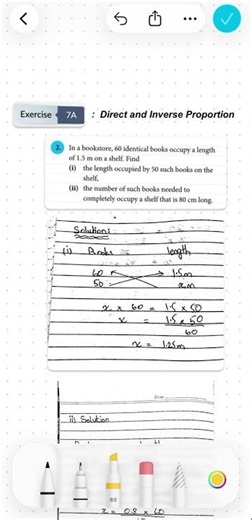 Exercise 7A : Direct and Inverse Proportion
2. In a bookstore, 60 identical books occupy a length
of 1.5 m on a shelf. Find
(i) the length occupied by 50 such books on the
shelf,
(ii) the number of such books needed to
completely occupy a shelf that is 80 cm long.
Solution:
(i) Books length
60 1.5m
50 x m
x × 60 = 1.5 × 50
x = 1.5 × 50
60
x = 1.25m
ii) Solution
80
x = 0.8 × 60